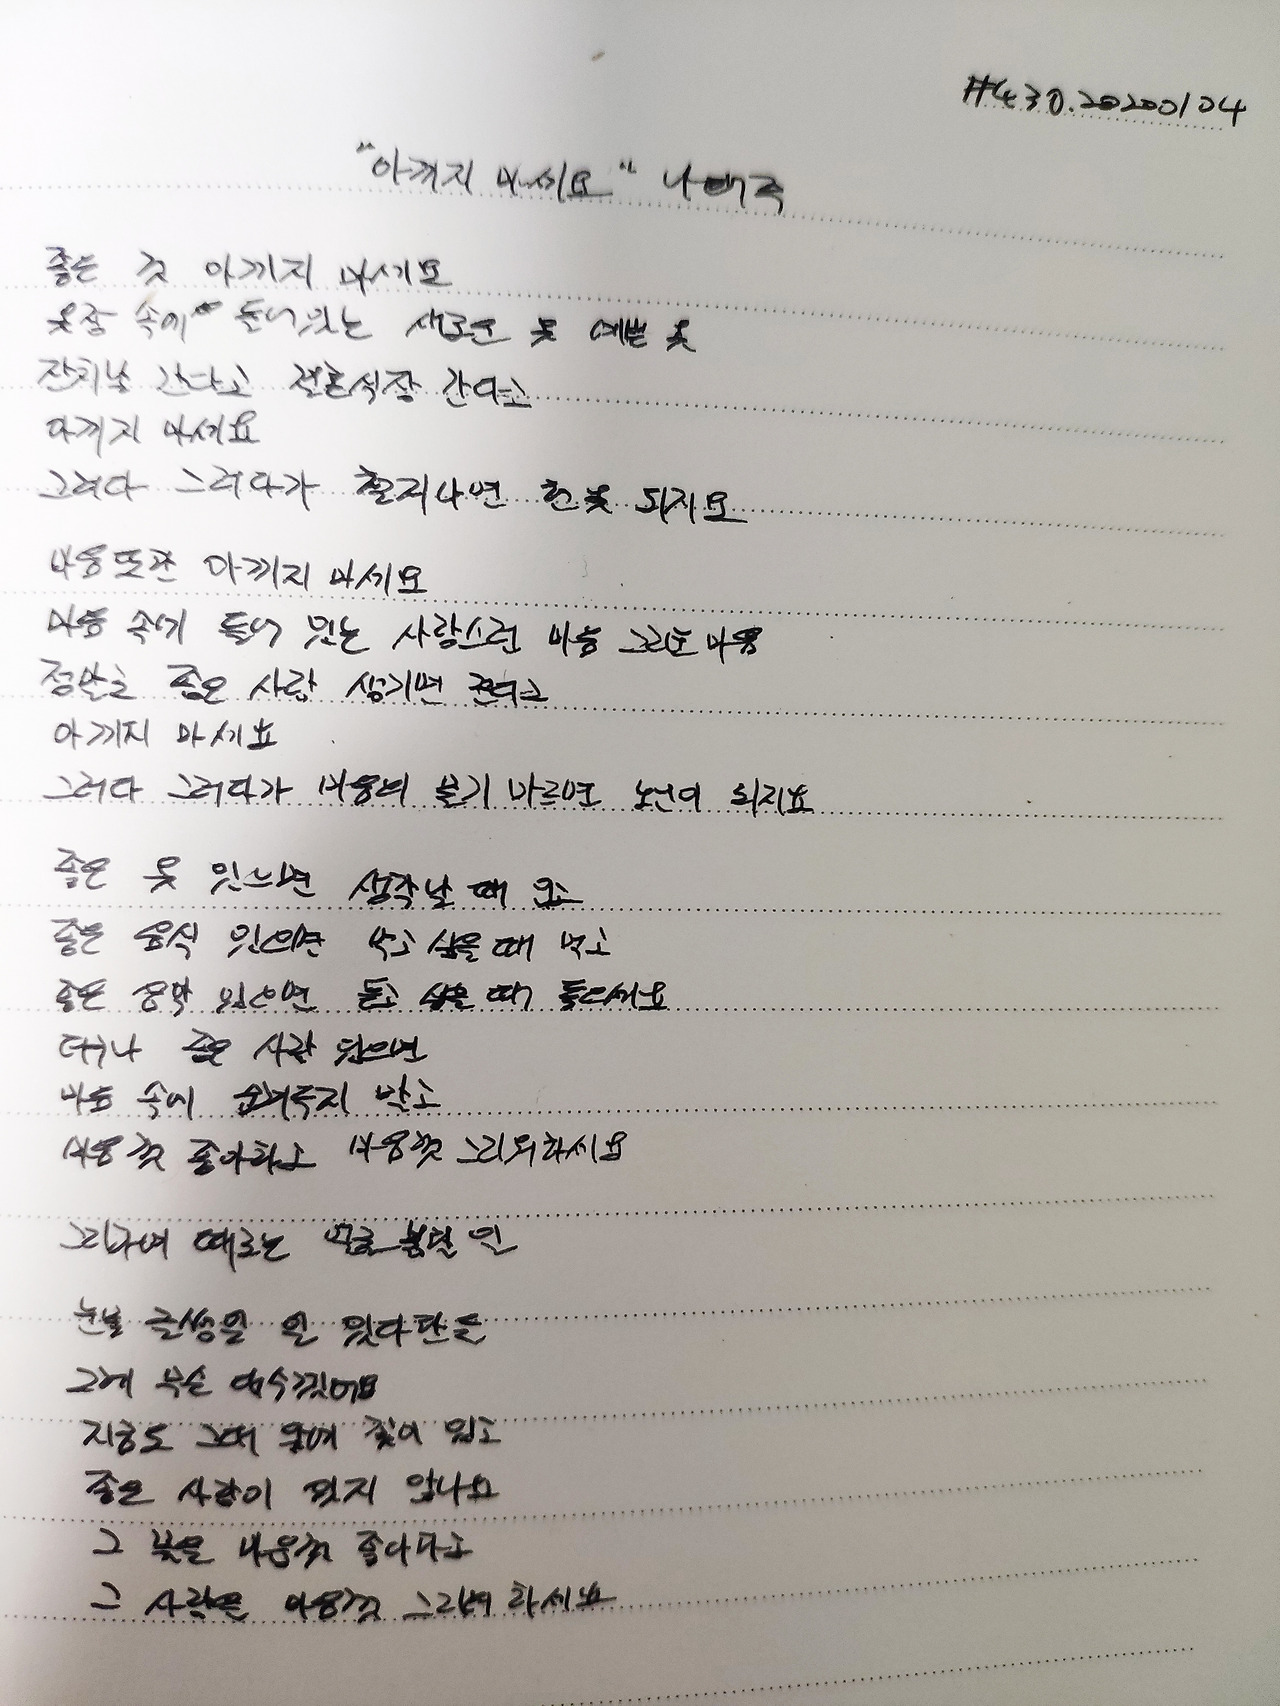 #430.20200104
"아끼지 마세요" 나태주
좋은 것 아끼지 마세요
옷장 속에 들어있는 새로운 옷 예쁜 옷
잔칫날 간다고 결혼식장 간다고
아끼지 마세요
그러다 그러다가 철지나면 헌옷 되지요
마음또한 아끼지 마세요
마음 속에 들어 있는 사랑스런 마음 그리운 마음
정말로 좋은 사람 생기면 준다고
아끼지 마세요
그러다 그러다가 마음의 물기 마르면 노인이 되지요
좋은 옷 있으면 생각날 때 입고
좋은 음식 있으면 먹고 싶을 때 먹고
좋은 음악 있으면 듣고 싶을 때 들으세요
더구나 좋은 사람 있으면
마음 속에 숨겨두지 말고
마음껏 좋아하고 마음껏 그리워하세요
그리하여 때로는 얼굴 붉힐 일
눈물 글썽일 일 있다한들
그게 무슨 대수겠어요
지금도 그대 앞에 꽃이 있고
좋은 사람이 있지 않나요
그 꽃을 마음껏 좋아하고
그 사람을 마음껏 그리워 하세요